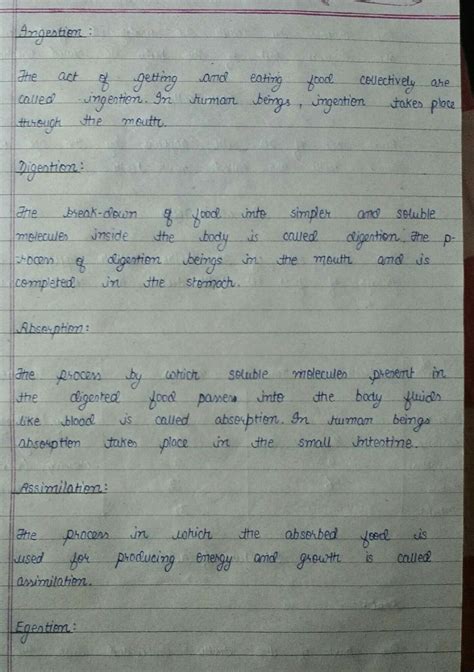 Ingestion :
The act of getting and eating food collectively are
called ingestion. In human beings, ingestion takes place
through the mouth.
Digestion :
The break-down of food into simpler and soluble
molecules inside the body is called digestion. The p-
rocess of digestion beings in the mouth and is
completed in the stomach.
Absorption :
The process by which soluble molecules present in
the digested food passes into the body fluids
like blood is called absorption. In human beings
absorption takes place in the small intestine.
Assimilation :
The process in which the absorbed food is
used for producing energy and growth is called
assimilation.
Egestion :